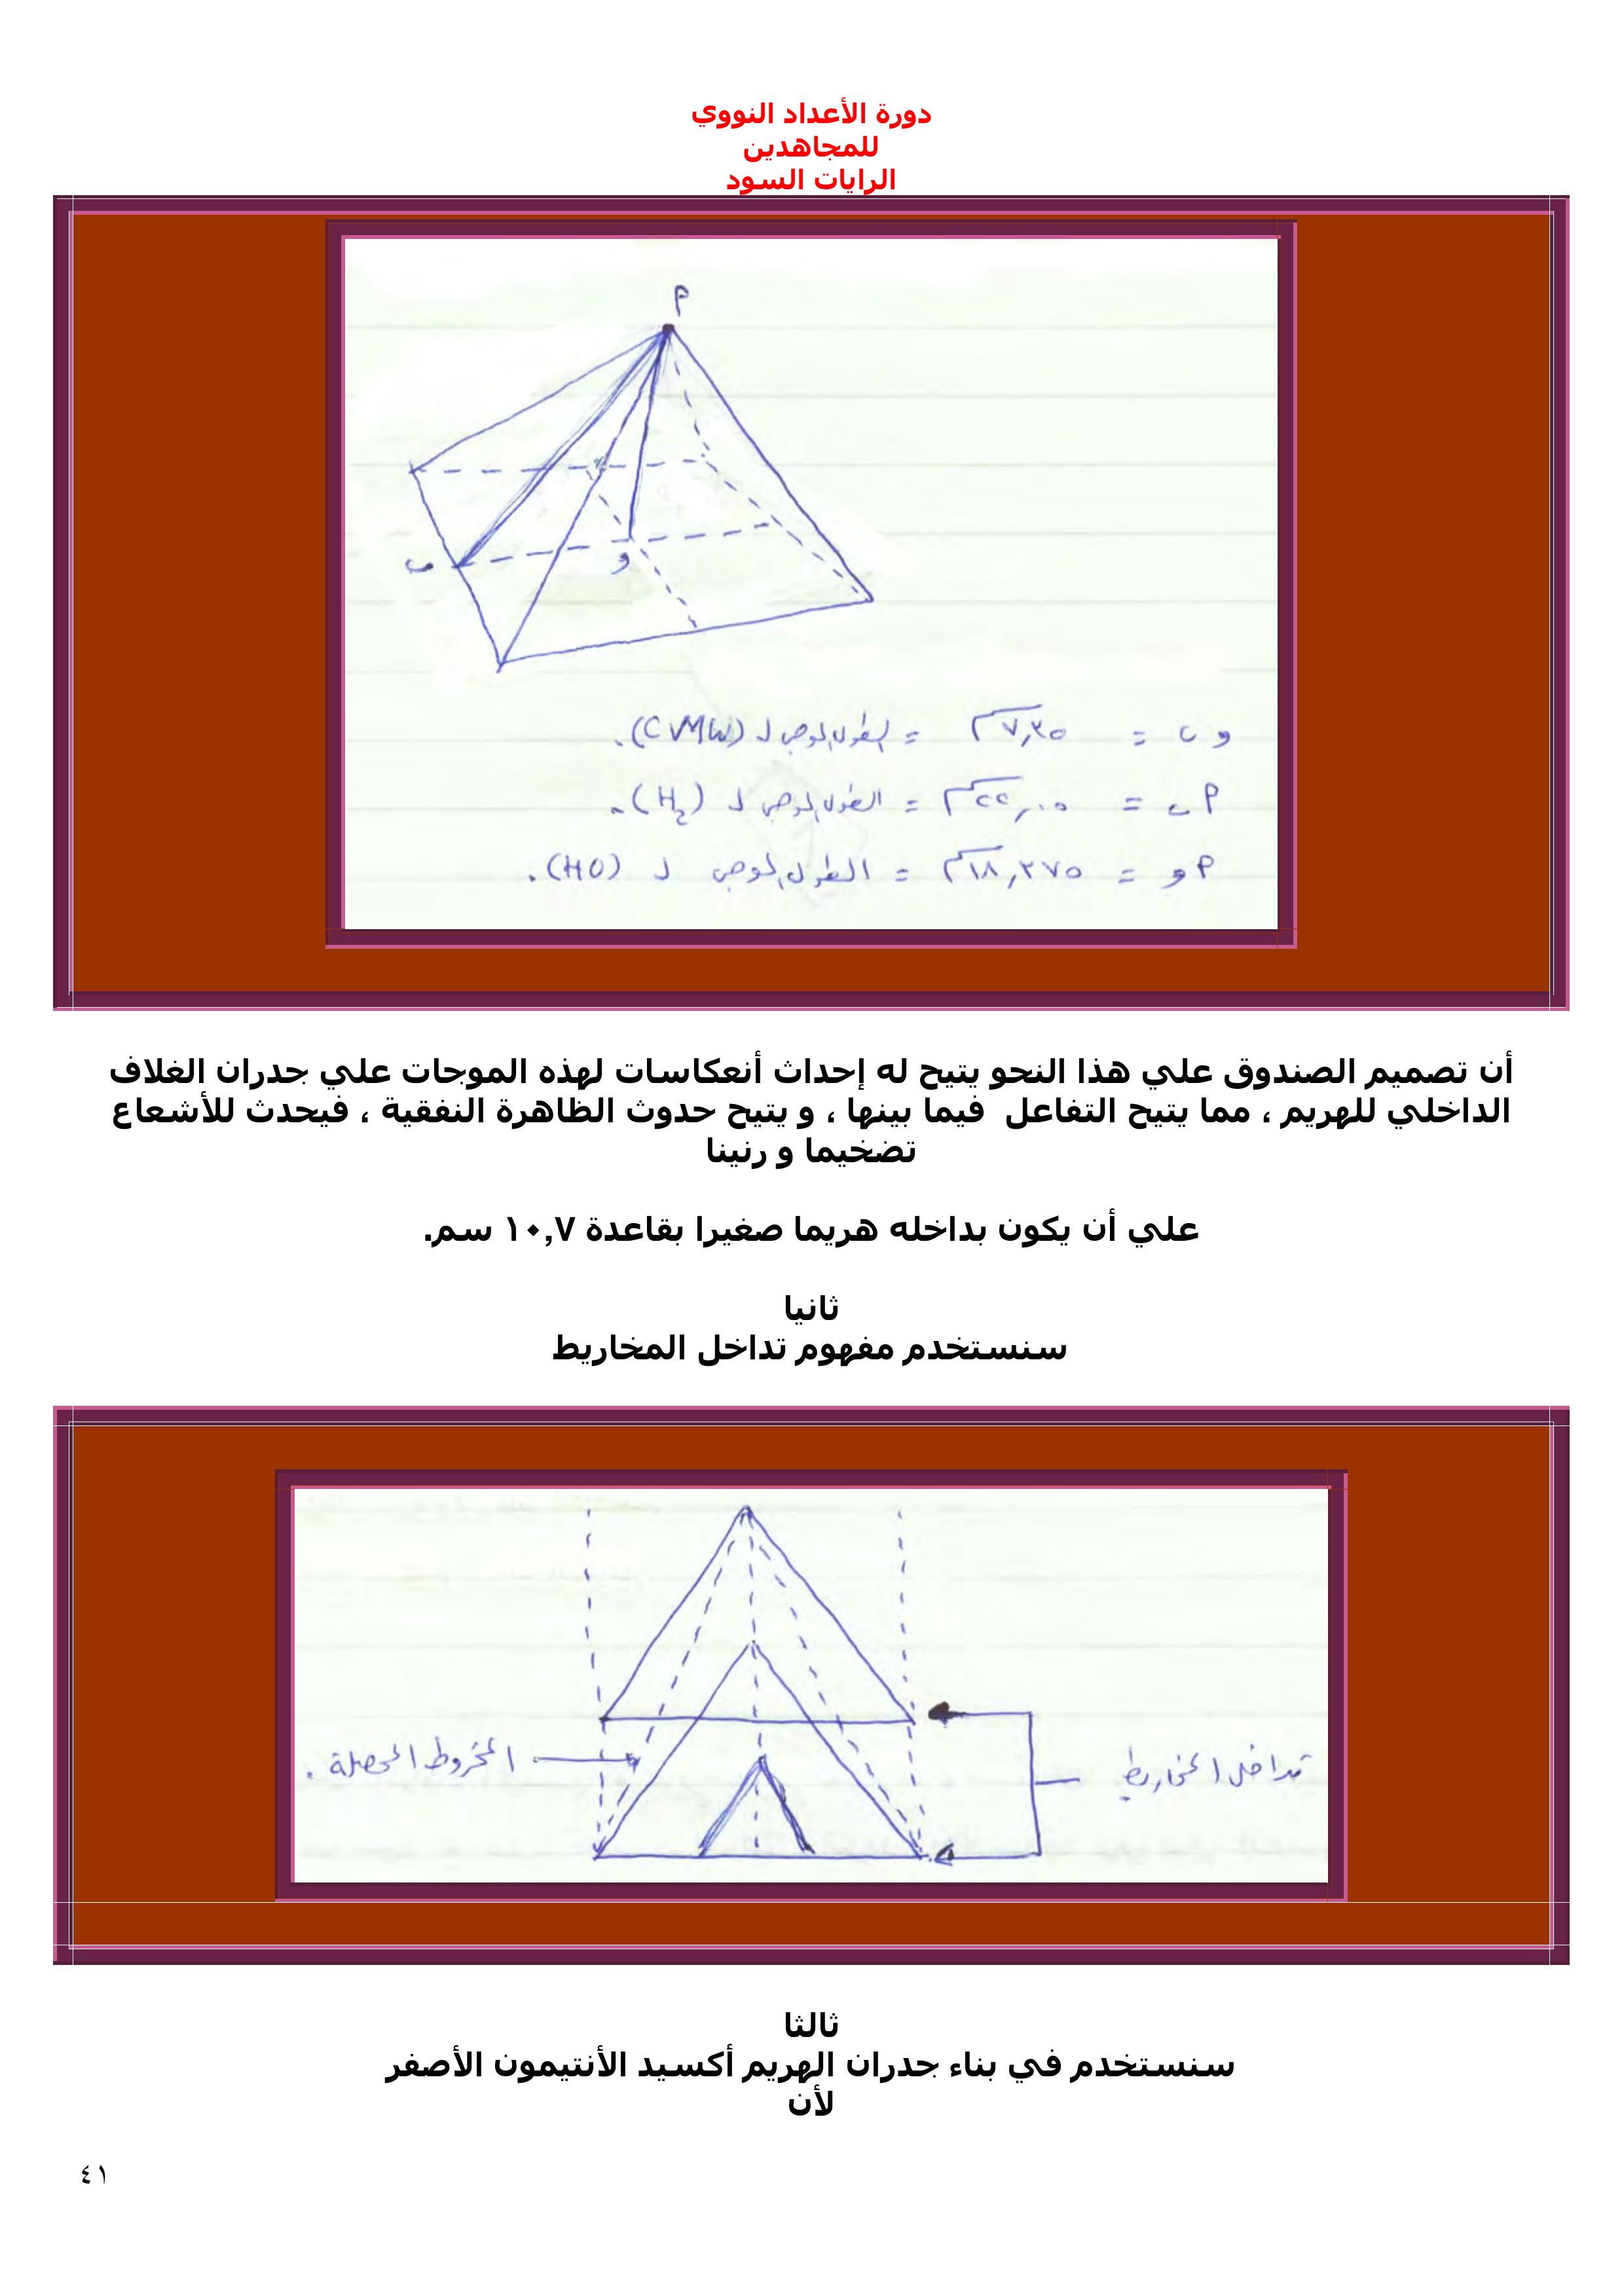 دورة الأعداد النووي
للمجاهدين
الرايات السود
م
ب
و
و ب = ٧,٣٥ سم = الطول الموجي لـ (CMW).
م ب = ٢٢,٠٥ سم = الطول الموجي لـ (H₂).
م و = ١٨,٣٧٥ سم = الطول الموجي لـ (HO).
أن تصميم الصندوق علي هذا النحو يتيح له إحداث أنعكاسات لهذه الموجات علي جدران الغلاف
الداخلي للهريم ، مما يتيح التفاعل فيما بينها ، و يتيح حدوث الظاهرة النفقية ، فيحدث للأشعاع
تضخيما و رنينا
علي أن يكون بداخله هريما صغيرا بقاعدة ١٠,٧ سم.
ثانيا
سنستخدم مفهوم تداخل المخاريط
تداخل المخاريط
المخروط المحصلة .
ثالثا
سنستخدم في بناء جدران الهريم أكسيد الأنتيمون الأصفر
لأن
٤١